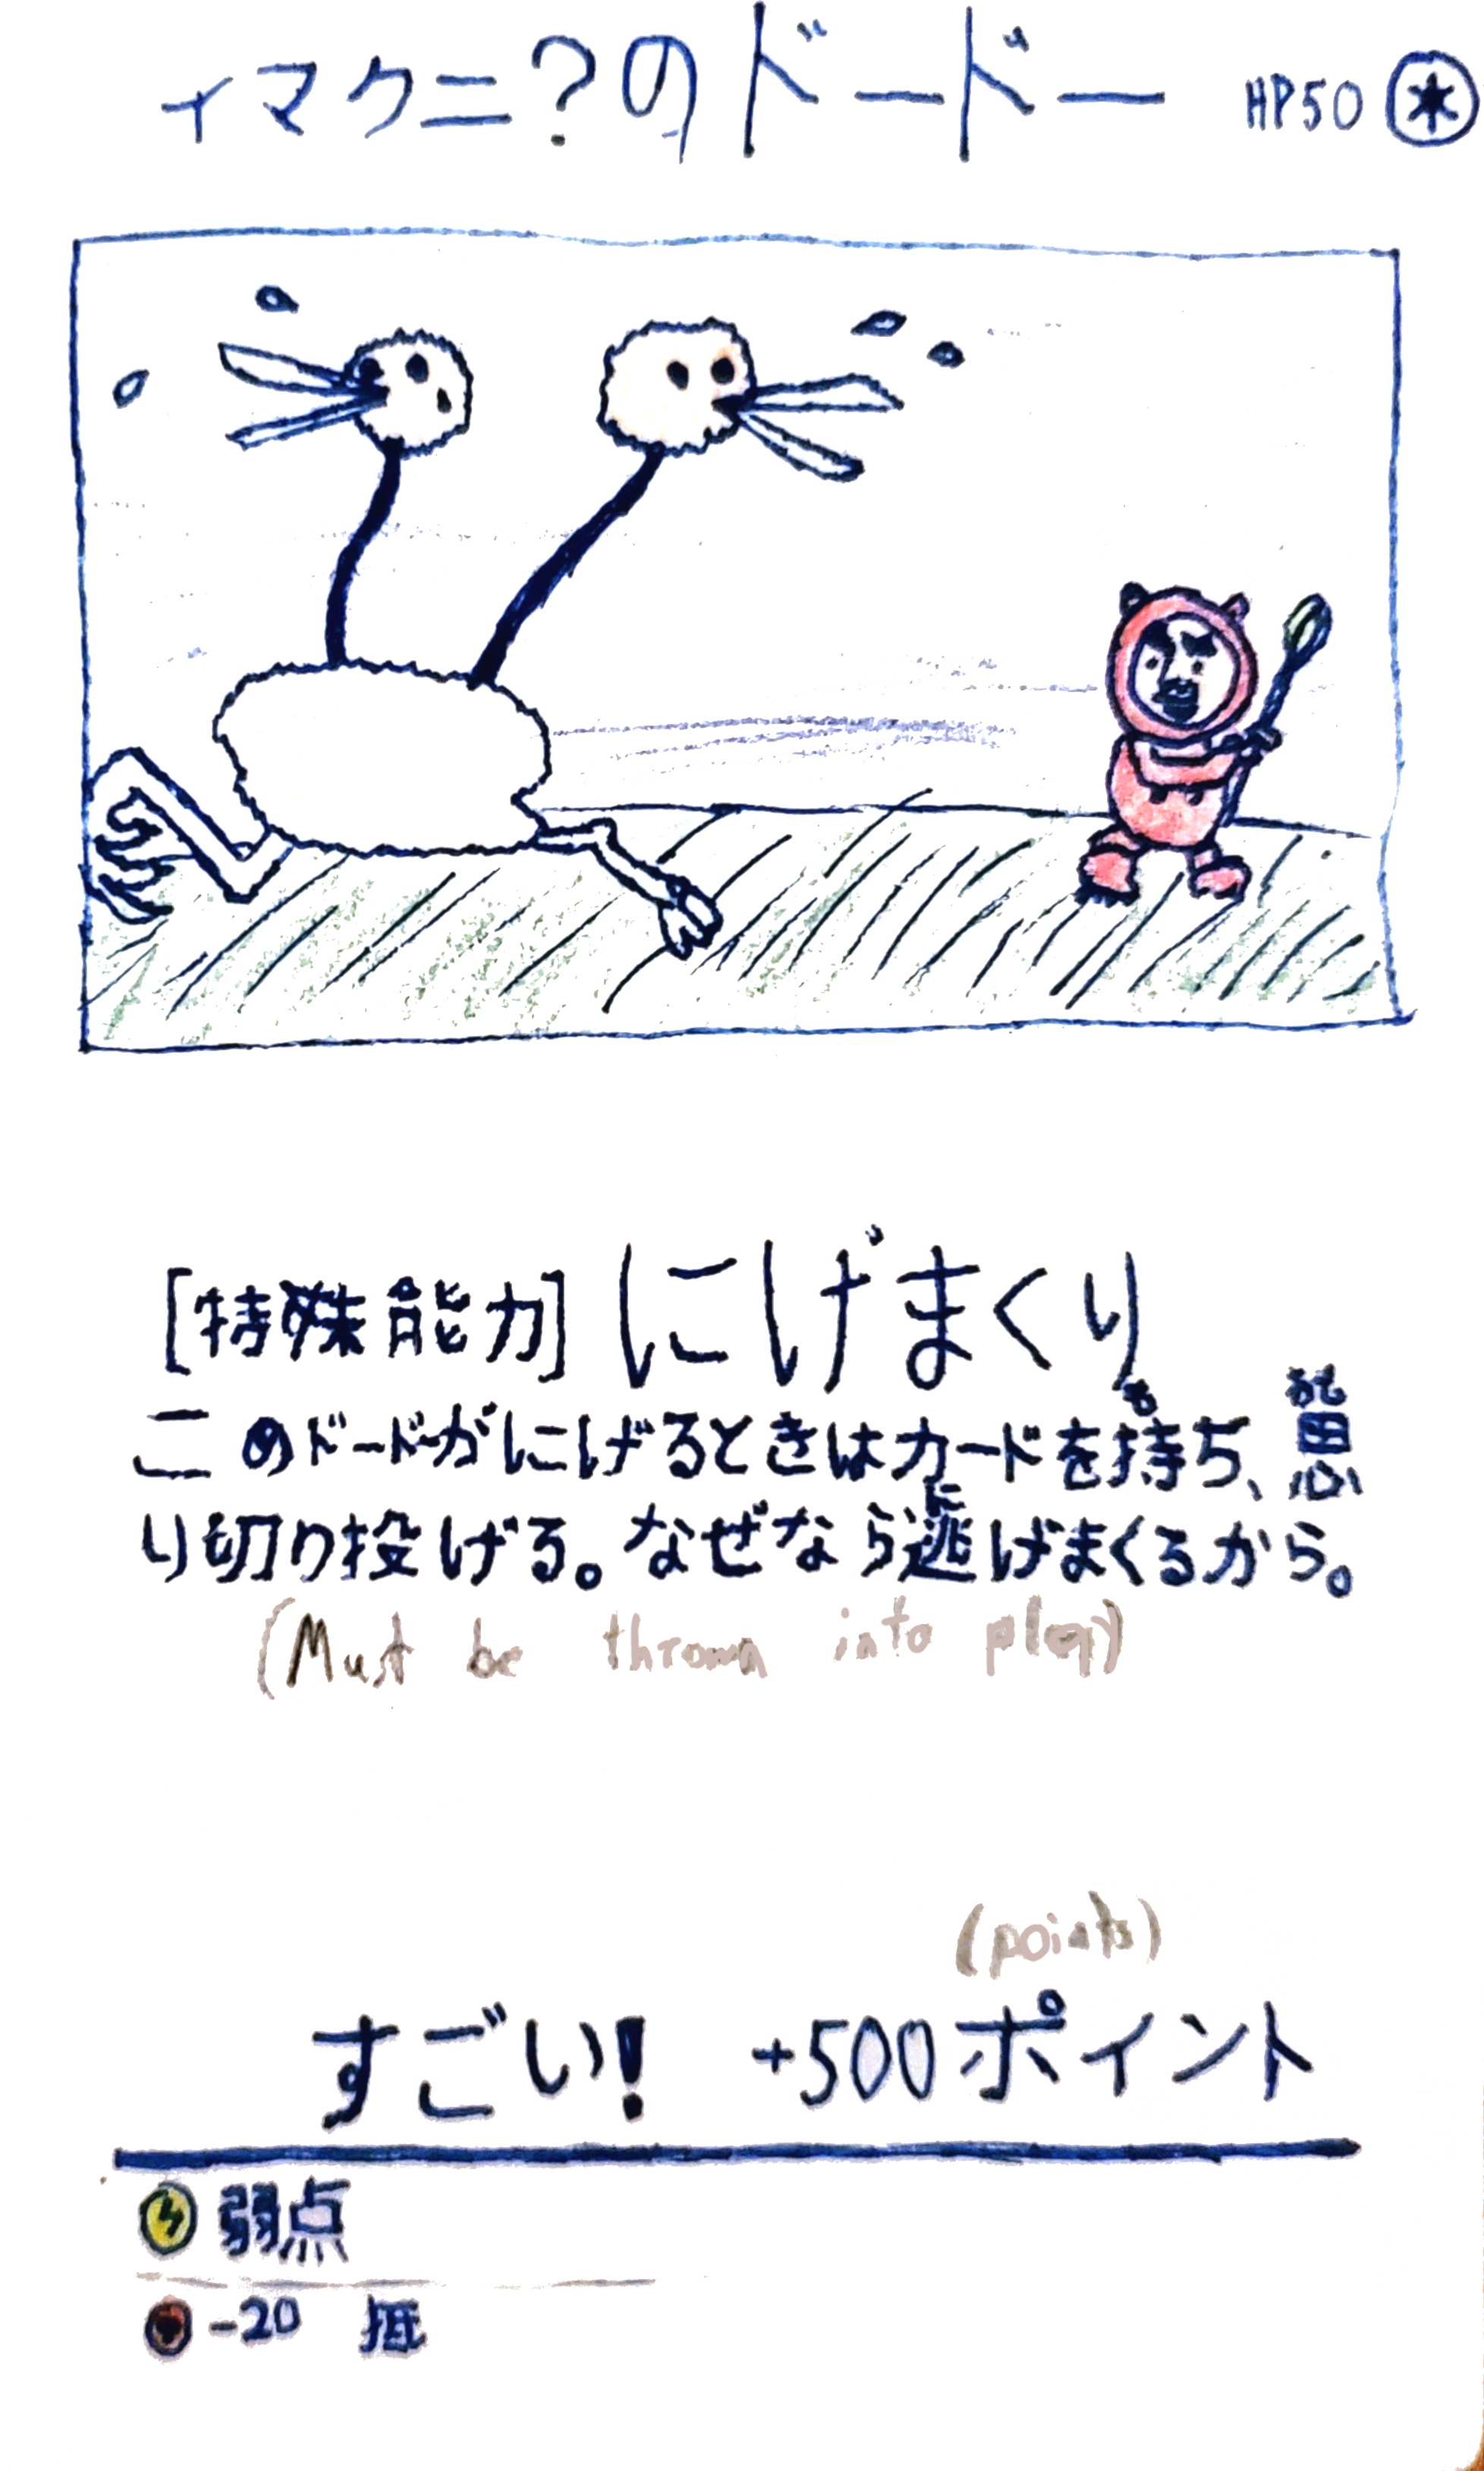 イマクニ?のドードー HP50
[特殊能力]にげまくり
も おも
このドードーがにげるときはカードを持ち、思
に
り切り投げる。なぜなら逃げまくるから。
(Must be thrown into play)
(points)
すごい! +500ポイント
弱点
-20 抵